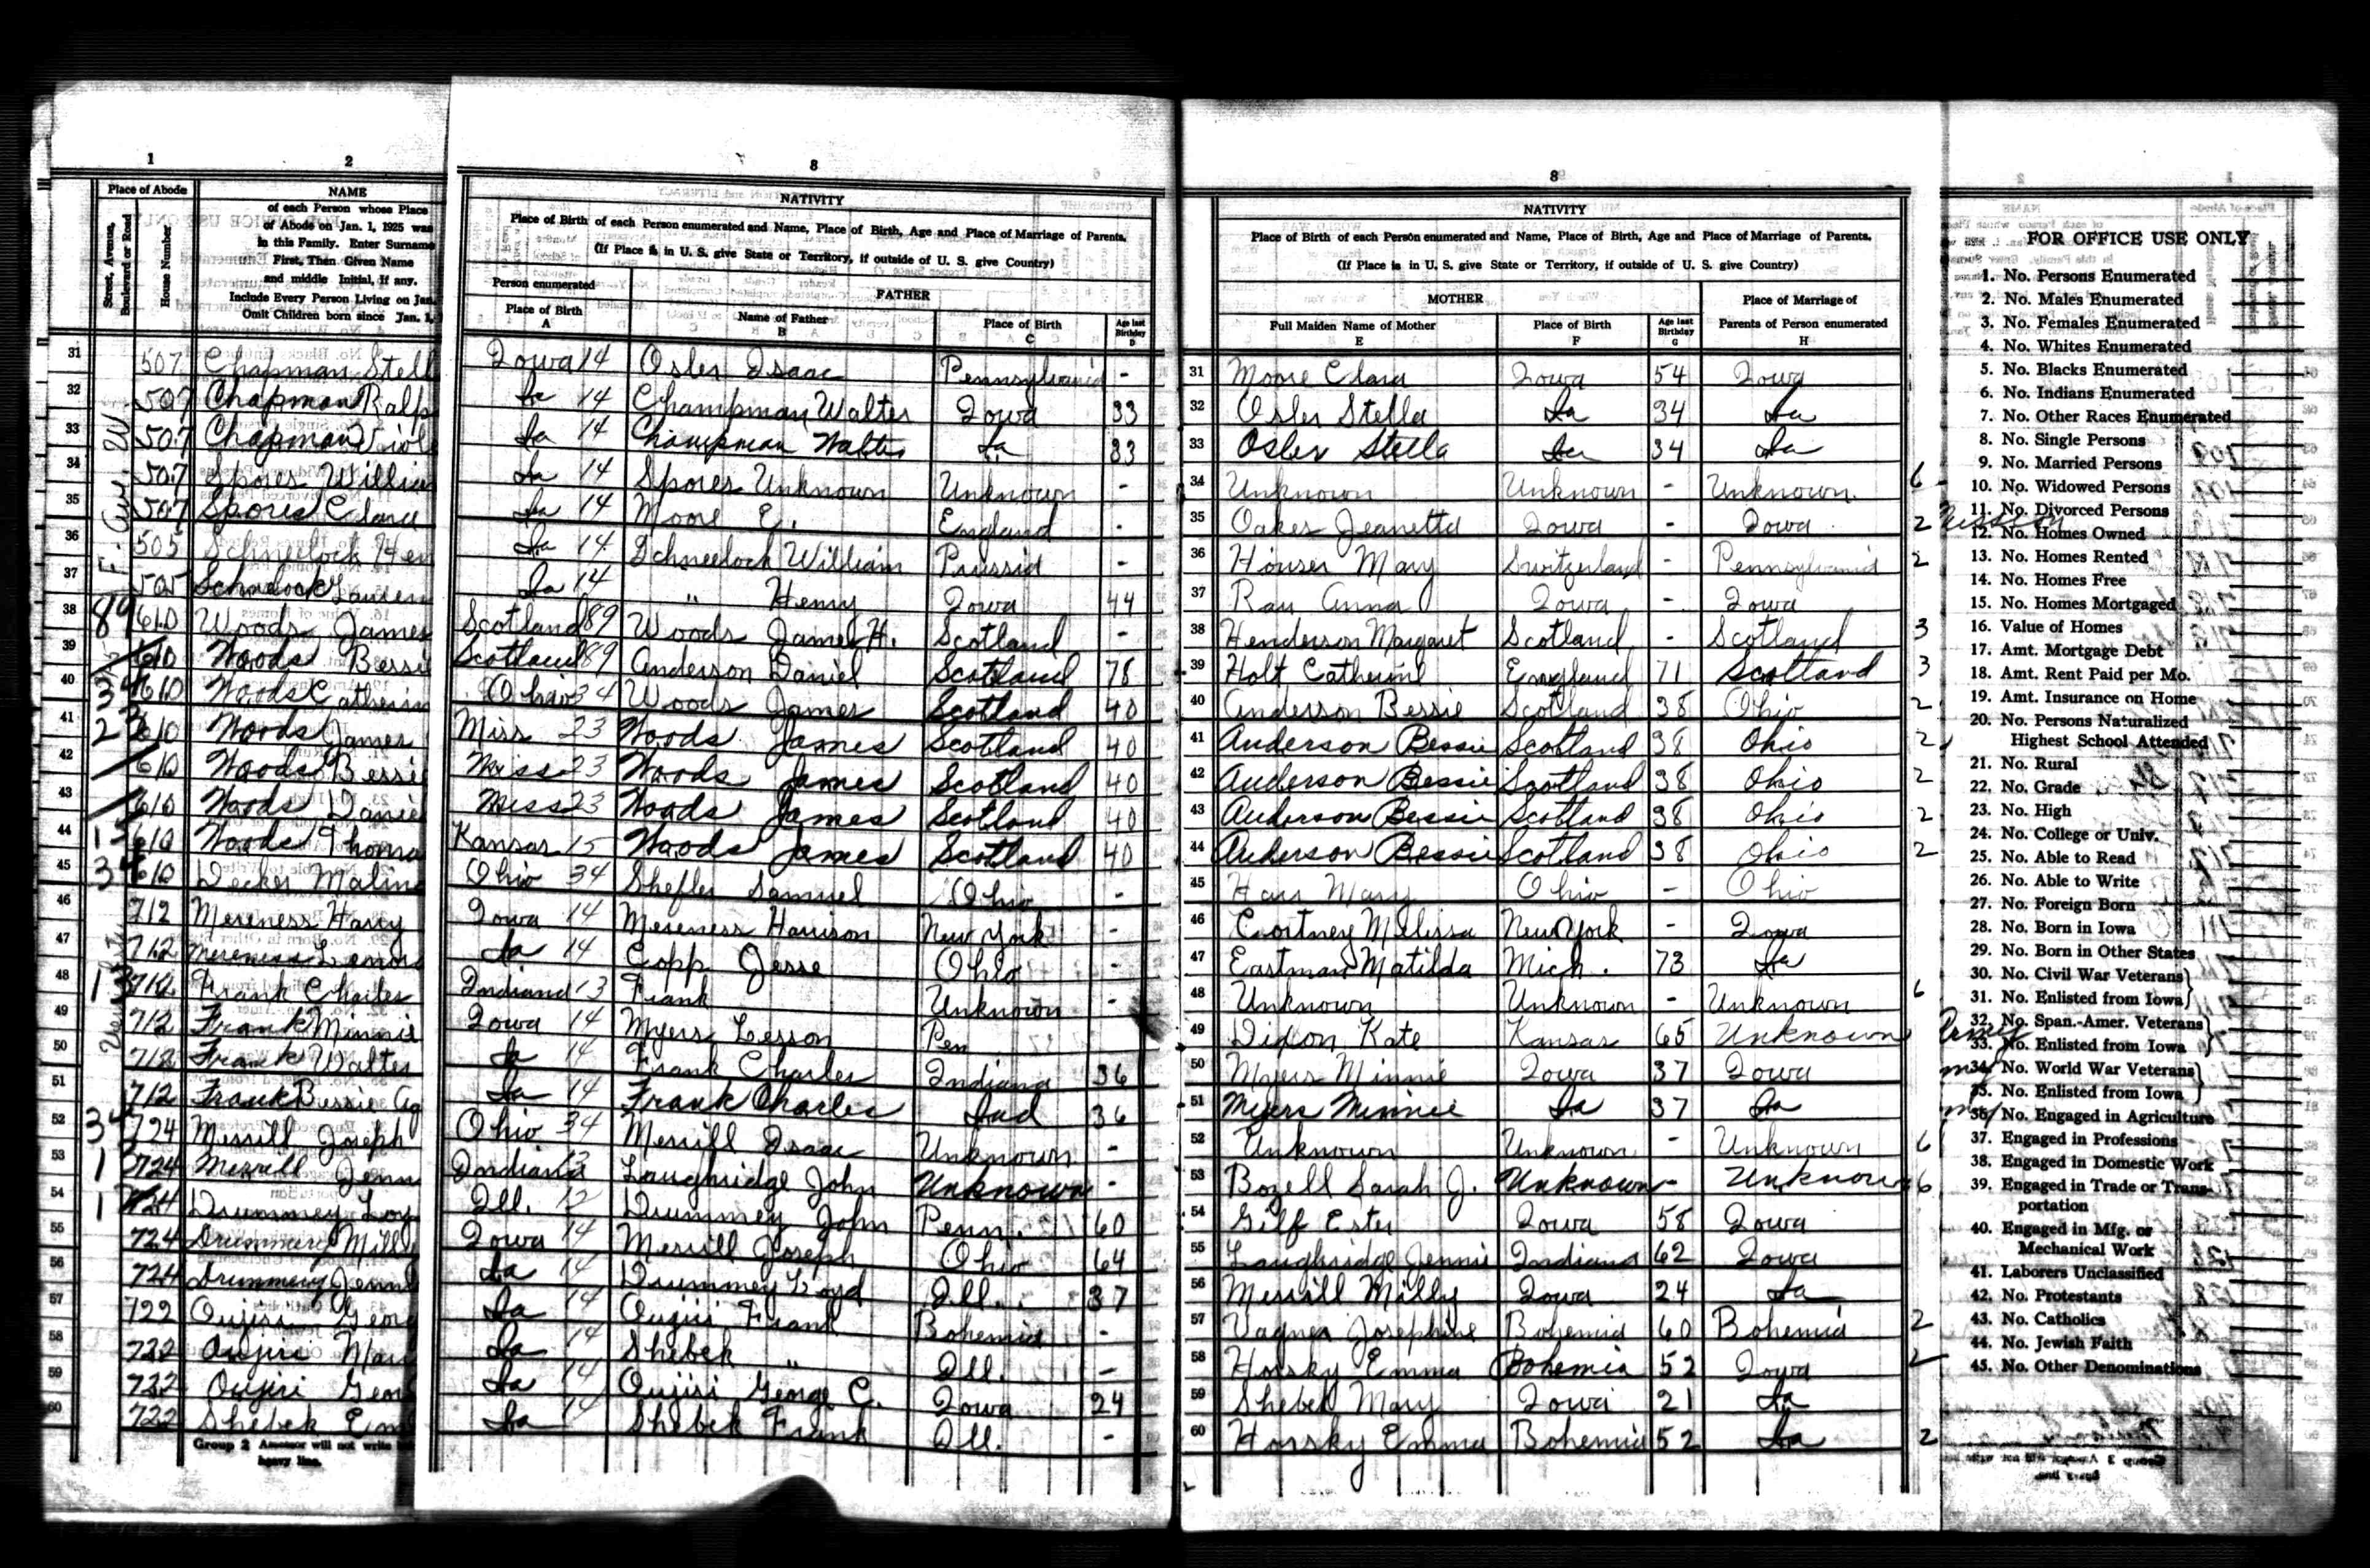 1 2 8 8
Place of Abode NAME NATIVITY NATIVITY
Street, Avenue, Boulevard or Road
House Number
of each Person whose Place
of Abode on Jan. 1, 1925 was
in this Family. Enter Surname
First, Then Given Name
and middle Initial, if any.
Include Every Person Living on Jan.
Omit Children born since Jan. 1,
Place of Birth of each Person enumerated and Name, Place of Birth, Age and Place of Marriage of Parents.
(If Place is in U. S. give State or Territory, if outside of U. S. give Country)
Person enumerated FATHER
Place of Birth A Name of Father B Place of Birth C Age last Birthday D
Place of Birth of each Person enumerated and Name, Place of Birth, Age and Place of Marriage of Parents.
(If Place is in U. S. give State or Territory, if outside of U. S. give Country)
MOTHER Place of Marriage of
Full Maiden Name of Mother E Place of Birth F Age last Birthday G Parents of Person enumerated H
31 507 Chapman Stell Iowa 14 Osler Isaac Pennsylvania - 31 Moore Clara Iowa 54 Iowa
32 507 Chapman Ralp Ia 14 Champman Walter Iowa 33 32 Osler Stella Ia 34 Ia
33 507 Chapman Viol Ia 14 Champman Walter Ia 33 33 Osler Stella Ia 34 Ia
34 507 Spores Willia Ia 14 Spores Unknown Unknown - 34 Unknown Unknown - Unknown 6
35 507 Spores Clara Ia 14 Moore E. England - 35 Oakes Jeanetta Iowa - Iowa 2
36 505 Schneelock Hen Ia 14 Schneelock William Prussia - 36 Houser Mary Switzerland - Pennsylvania 2
37 505 Schneelock Lauren Ia 14 " Henry Iowa 44 37 Ray Anna Iowa - Iowa
38 89 610 Woods James Scotland 89 Woods James H. Scotland - 38 Henderson Margaret Scotland - Scotland 3
39 610 Woods Bessie Scotland 89 Anderson Daniel Scotland 78 39 Holt Catherine England 71 Scotland 3
40 34 610 Woods Catherin Ohio 34 Woods James Scotland 40 40 Anderson Bessie Scotland 38 Ohio 2
41 23 610 Woods James Miss 23 Woods James Scotland 40 41 Anderson Bessie Scotland 38 Ohio 2
42 610 Woods Bessie Miss 23 Woods James Scotland 40 42 Anderson Bessie Scotland 38 Ohio 2
43 610 Woods Danie Miss 23 Woods James Scotland 40 43 Anderson Bessie Scotland 38 Ohio 2
44 15 610 Woods Thoma Kansas 15 Woods James Scotland 40 44 Anderson Bessie Scotland 38 Ohio 2
45 34 610 Decker Malin Ohio 34 Shefler Samuel Ohio - 45 Mary Ohio - Ohio
46 712 Mereness Harry Iowa 14 Mereness Harrison New York - 46 Cortney Melissa New York - Iowa
47 712 Mereness Lenor Ia 14 Copp Jesse Ohio - 47 Eastman Matilda Mich. 73 Ia
48 13 712 Frank Charles Indiana 13 Frank Unknown - 48 Unknown Unknown - Unknown 6
49 712 Frank Minnie Iowa 14 Myers Lesson Pen 49 Dixon Kate Kansas 65 Unknown
50 712 Frank Walter Ia 14 Frank Charles Indiana 36 50 Myers Minnie Iowa 37 Iowa
51 712 Frank Bessie Ag Ia 14 Frank Charles Ind 36 51 Myers Minnie Ia 37 Ia
52 34 724 Merrill Joseph Ohio 34 Merrill Isaac Unknown - 52 Unknown Unknown - Unknown 6
53 1 724 Merrill Jenn Indiana 13 Laughridge John Unknown - 53 Bozell Sarah J. Unknown - Unknown 6
54 1 724 Drummey Loy Ill. 12 Drummey John Penn. 60 54 Gilf Ester Iowa 58 Iowa
55 724 Drummey Milly Iowa 14 Merrill Joseph Ohio 64 55 Laughridge Jennie Indiana 62 Iowa
56 724 Drummey Jenn Ia 14 Drummey Loyd Ill. 37 56 Merrill Milly Iowa 24 Ia
57 722 Oujiri Georg Ia 14 Oujiri Frank Bohemia - 57 Vagner Josephine Bohemia 60 Bohemia 2
58 722 Oujiri Mary Ia 14 Shebek " Ill. - 58 Horsky Emma Bohemia 52 Iowa 2
59 722 Oujiri Geor Ia 14 Oujiri George C. Iowa 24 59 Shebek Mary Iowa 21 Ia
60 722 Shebek Em Ia 14 Shebek Frank Ill. - 60 Horsky Emma Bohemia 52 Ia 2
Group 2 Assessor will not write
heavy line.
FOR OFFICE USE ONLY
1. No. Persons Enumerated
2. No. Males Enumerated
3. No. Females Enumerated
4. No. Whites Enumerated
5. No. Blacks Enumerated
6. No. Indians Enumerated
7. No. Other Races Enumerated
8. No. Single Persons
9. No. Married Persons
10. No. Widowed Persons
11. No. Divorced Persons
12. No. Homes Owned
13. No. Homes Rented
14. No. Homes Free
15. No. Homes Mortgaged
16. Value of Homes
17. Amt. Mortgage Debt
18. Amt. Rent Paid per Mo.
19. Amt. Insurance on Home
20. No. Persons Naturalized
Highest School Attended
21. No. Rural
22. No. Grade
23. No. High
24. No. College or Univ.
25. No. Able to Read
26. No. Able to Write
27. No. Foreign Born
28. No. Born in Iowa
29. No. Born in Other States
30. No. Civil War Veterans
31. No. Enlisted from Iowa
32. No. Span.-Amer. Veterans
33. No. Enlisted from Iowa
34. No. World War Veterans
35. No. Enlisted from Iowa
36. No. Engaged in Agriculture
37. Engaged in Professions
38. Engaged in Domestic Work
39. Engaged in Trade or Trans-
portation
40. Engaged in Mfg. or
Mechanical Work
41. Laborers Unclassified
42. No. Protestants
43. No. Catholics
44. No. Jewish Faith
45. No. Other Denominations